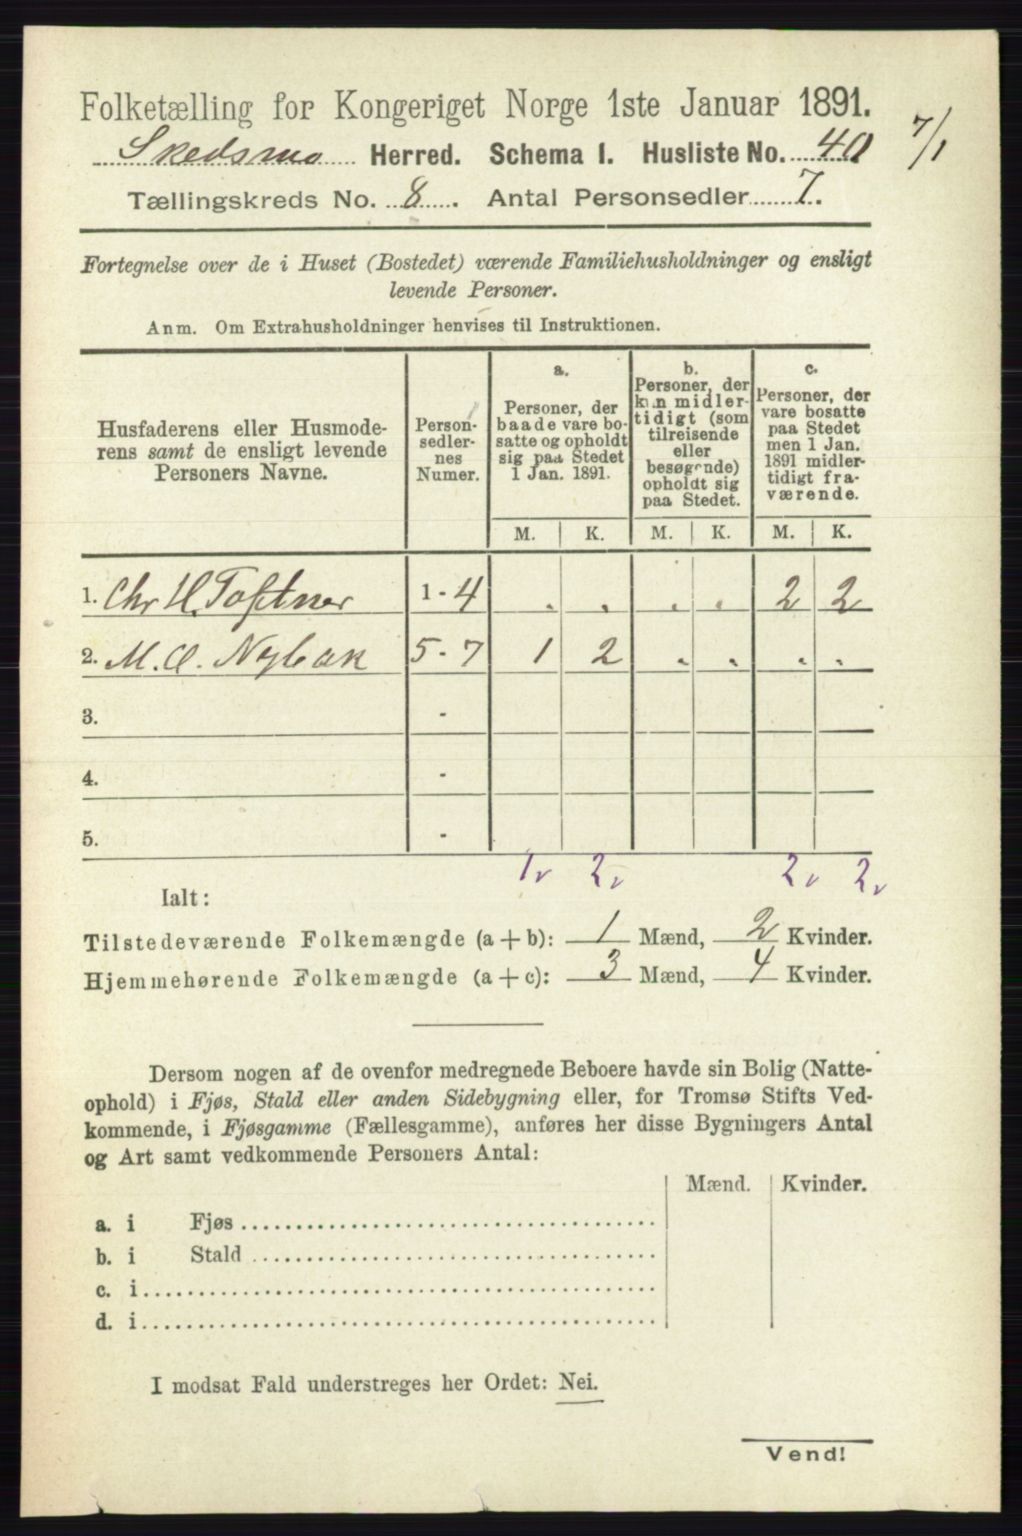 Folketælling for Kongeriget Norge 1ste Januar 1891.
7/1
Skedsmo Herred. Schema I. Husliste No. 40
Tællingskreds No. 8. Antal Personsedler 7.
Fortegnelse over de i Huset (Bostedet) værende Familiehusholdninger og ensligt
levende Personer.
Anm. Om Extrahusholdninger henvises til Instruktionen.
Husfaderens eller Husmode-
rens samt de ensligt levende
Personers Navne.
Person-
sedler-
nes
Numer.
a.
Personer, der
baade vare bo-
satte og opholdt
sig paa Stedet
1 Jan. 1891.
b.
Personer, der
kun midler-
tidigt (som
tilreisende
eller
besøgende)
opholdt sig
paa Stedet.
c.
Personer, der
vare bosatte
paa Stedet
men 1 Jan.
1891 midler-
tidigt fra-
værende.
M. K. M. K. M. K.
1. Chr H. Toftner 1 - 4 . . . . 2 2
2. M. O. Nybak 5 - 7 1 2 . . . .
3. -
4. -
5. -
1 2 2 2
Ialt:
Tilstedeværende Folkemængde (a + b): 1 Mænd, 2 Kvinder.
Hjemmehørende Folkemængde (a + c): 3 Mænd, 4 Kvinder.
Dersom nogen af de ovenfor medregnede Beboere havde sin Bolig (Natte-
ophold) i Fjøs, Stald eller anden Sidebygning eller, for Tromsø Stifts Ved-
kommende, i Fjøsgamme (Fællesgamme), anføres her disse Bygningers Antal
og Art samt vedkommende Personers Antal:
Mænd. Kvinder.
a. i Fjøs
b. i Stald
c. i
d. i
I modsat Fald understreges her Ordet: Nei.
Vend!